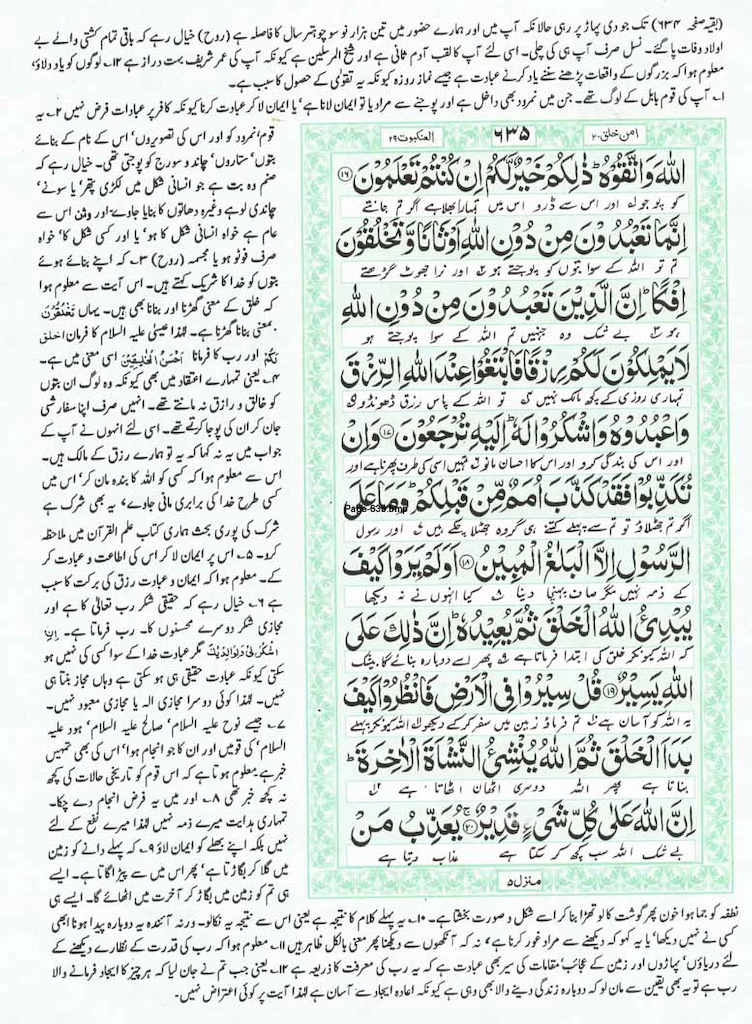 (بقیہ صفحہ ۶۳۴) تک جودی پہاڑ پر رہی حالانکہ آپ میں اور ہمارے حضور میں تین ہزار نو سو چوہتر سال کا فاصلہ ہے (روح) خیال رہے کہ باقی تمام کشتی والے بے
اولاد وفات پا گئے۔ نسل صرف آپ ہی کی چلی۔ اسی لئے آپ کا لقب آدم ثانی ہے اور شیخ المرسلین ہے کیونکہ آپ کی عمر شریف بہت دراز ہے ۱۲۔ لوگوں کو یاد دلاؤ،
معلوم ہوا کہ بزرگوں کے واقعات پڑھنے سننے یاد کرنے عبادت ہے جیسے نماز روزہ کیونکہ یہ تقویٰ کے حصول کا سبب ہے۔
۱۔ آپ کی قوم بابل کے لوگ تھے۔ جن میں نمرود بھی داخل ہے اور پوجنے سے مراد یا تو ایمان لانا ہے یا ایمان لا کر عبادت کرنا کیونکہ کافر پر عبادات فرض نہیں ۲۔ یہ
قوم، نمرود کو اور اس کی تصویروں، اس کے نام کے بنائے
بتوں، ستاروں، چاند و سورج کو پوجتی تھی۔ خیال رہے کہ
صنم وہ بت ہے جو انسانی شکل میں لکڑی پتھر، یا سونے،
چاندی لوہے وغیرہ دھاتوں کا بنایا جاوے اور وثن اس سے
عام ہے خواہ انسانی شکل کا ہو، یا اور کسی شکل کا، خواہ
صرف فوٹو ہو یا مجسمہ (روح) ۳۔ کہ اپنے بنائے ہوئے
بتوں کو خدا کا شریک کہتے ہیں۔ اس آیت سے معلوم ہوا
کہ خلق کے معنی گھڑنا اور بنانا بھی ہیں۔ یہاں تَخْلُقُوْنَ
بمعنی بنانا گھڑنا ہے۔ لہٰذا عیسیٰ علیہ السلام کا فرمان اخلق
لکم اور رب کا فرمانا اَحْسَنُ الْخَالِقِیْنَ اسی معنی میں ہے۔
۴۔ یعنی تمہارے اعتقاد میں بھی کیونکہ وہ لوگ ان بتوں
کو خالق و رازق نہ مانتے تھے۔ انہیں صرف اپنا سفارشی
جان کر ان کی پوجا کرتے تھے۔ اسی لئے انہوں نے آپ کے
جواب میں یہ نہ کہا کہ یہ تو ہمارے رزق کے مالک ہیں۔
اس سے معلوم ہوا کہ کسی کو اللہ کا بندہ مان کر، اس میں
کسی طرح خدا کی برابری مانی جاوے، یہ بھی شرک ہے
شرک کی پوری بحث ہماری کتاب علم القرآن میں ملاحظہ
کرو۔ ۵۔ اس پر ایمان لا کر اس کی اطاعت و عبادت کر
کے۔ معلوم ہوا کہ ایمان و عبادت رزق کی برکت کا سبب
ہے ۶۔ خیال رہے کہ حقیقی شکر رب تعالیٰ کا ہے اور
مجازی شکر دوسرے محسنوں کا۔ رب فرماتا ہے۔ اَنِ
اشْکُرْ لِیْ وَلِوَالِدَیْکَ مگر عبادت خدا کے سوا کسی کی نہیں ہو
سکتی کیونکہ عبادت حقیقی ہی ہو سکتی ہے وہاں مجاز بنتا ہی
نہیں۔ لہٰذا کوئی دوسرا مجازی الٰہ یا مجازی معبود نہیں۔
۷۔ جیسے نوح علیہ السلام، صالح علیہ السلام، ہود علیہ
السلام، کی قومیں اور ان کا جو انجام ہوا، اس کی بھی تمہیں
خبر ہے۔ معلوم ہوتا ہے کہ اس قوم کو تاریخی حالات کی کچھ
نہ کچھ خبر تھی ۸۔ اور میں یہ فرض انجام دے چکا۔
تمہاری ہدایت میرے ذمہ نہیں لہٰذا میرے نفع کے لئے
نہیں بلکہ اپنے بھلے کو ایمان لاؤ ۹۔ کہ پہلے دانے کو زمین
میں گلا کر بگاڑتا ہے، پھر اس میں سے پیڑ اگاتا ہے۔ ایسے
ہی تم کو زمین میں بگاڑ کر آخرت میں اٹھائے گا۔ ایسے ہی
امن خلق ۲۰
۶۳۵
العنکبوت ۲۹
اللّٰهَ وَاتَّقُوْهُ ؕ ذٰلِكُمْ خَيْرٌ لَّكُمْ اِنْ كُنْتُمْ تَعْلَمُوْنَ ﴿۱۶﴾
کو پوجو اور اس سے ڈرو اس میں تمہارا بھلا ہے اگر تم جانتے
اِنَّمَا تَعْبُدُوْنَ مِنْ دُوْنِ اللّٰهِ اَوْثَانًا وَّتَخْلُقُوْنَ
تم تو اللہ کے سوا بتوں کو پوجتے ہو اور نرا جھوٹ گڑھتے
اِفْكًا ؕ اِنَّ الَّذِيْنَ تَعْبُدُوْنَ مِنْ دُوْنِ اللّٰهِ
ہو بے شک وہ جنہیں تم اللہ کے سوا پوجتے ہو
لَا يَمْلِكُوْنَ لَكُمْ رِزْقًا فَابْتَغُوْا عِنْدَ اللّٰهِ الرِّزْقَ
تمہاری روزی کے کچھ مالک نہیں تو اللہ کے پاس رزق ڈھونڈو
وَاعْبُدُوْهُ وَاشْكُرُوْا لَهٗ ؕ اِلَيْهِ تُرْجَعُوْنَ ﴿۱۷﴾ وَاِنْ
اور اس کی بندگی کرو اور اس کا احسان مانو تمہیں اسی کی طرف پھرنا ہے اور
تُكَذِّبُوْا فَقَدْ كَذَّبَ اُمَمٌ مِّنْ قَبْلِكُمْ ؕ وَمَا عَلَى
Page-635.bmp
اگر تم جھٹلاؤ تو تم سے پہلے کتنے ہی گروہ جھٹلا چکے ہیں اور رسول
الرَّسُوْلِ اِلَّا الْبَلٰغُ الْمُبِيْنُ ﴿۱۸﴾ اَوَلَمْ يَرَوْا كَيْفَ
کے ذمہ نہیں مگر صاف پہنچا دینا کیا انہوں نے نہ دیکھا
يُبْدِئُ اللّٰهُ الْخَلْقَ ثُمَّ يُعِيْدُهٗ ؕ اِنَّ ذٰلِكَ عَلَى
کہ اللہ کیونکر خلق کی ابتدا فرماتا ہے پھر اسے دوبارہ بنائے گا بیشک
اللّٰهِ يَسِيْرٌ ﴿۱۹﴾ قُلْ سِيْرُوْا فِي الْاَرْضِ فَانْظُرُوْا كَيْفَ
یہ اللہ کو آسان ہے تم فرماؤ زمین میں سفر کر کے دیکھو اللہ کیونکر پہلے
بَدَاَ الْخَلْقَ ثُمَّ اللّٰهُ يُنْشِئُ النَّشْاَةَ الْاٰخِرَةَ ؕ
بناتا ہے پھر اللہ دوسری اٹھان اٹھاتا ہے
اِنَّ اللّٰهَ عَلٰى كُلِّ شَيْءٍ قَدِيْرٌ ﴿۲۰﴾ يُعَذِّبُ مَنْ
بے شک اللہ سب کچھ کر سکتا ہے عذاب دیتا ہے
منزل ۵
نطفہ کو جما ہوا خون پھر گوشت کا لوتھڑا بنا کر اسے شکل و صورت بخشتا ہے۔ ۱۰۔ یہ پہلے کلام کا نتیجہ ہے یعنی اس سے نتیجہ یہ نکالو۔ ورنہ آئندہ یہ دوبارہ پیدا ہونا ابھی
کسی نے نہیں دیکھا، یا یہ کہو کہ دیکھنے سے مراد غور کرنا ہے، نہ کہ آنکھوں سے دیکھنا پھر معنی بالکل ظاہر ہیں ۱۱۔ معلوم ہوا کہ رب کی قدرت کے نظارے دیکھنے کے
لئے دریاؤں، پہاڑوں اور زمین کے عجائب مقامات کی سیر بھی عبادت ہے کہ یہ رب کی معرفت کا ذریعہ ہے ۱۲۔ یعنی جب تم نے جان لیا کہ ہر چیز کا ایجاد فرمانے والا
رب ہے تو یہ بھی یقین سے مان لو کہ دوبارہ زندگی دینے والا بھی وہی ہے کیونکہ اعادہ ایجاد سے آسان ہے لہٰذا آیت پر کوئی اعتراض نہیں۔